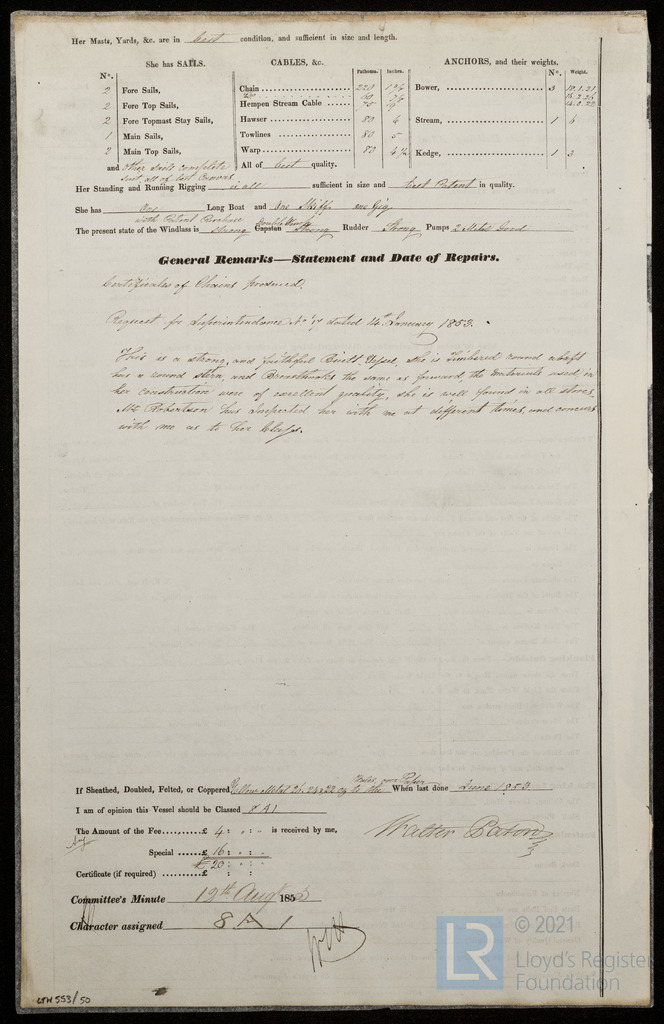 Her Masts, Yards, &c. are in best condition, and sufficient in size and length.
She has SAILS. CABLES, &c. ANCHORS, and their weights.
N°. Fathoms. Inches. N°. Weight.
2 Fore Sails, Chain 220 Bower, 3
2 Fore Top Sails, Hempen Stream Cable 75 9
2 Fore Topmast Stay Sails, Hawser 80 6 Stream, 1 6
1 Main Sails, Towlines 80 5
2 Main Top Sails, Warp 80 4½ Kedge, 1 3
and other sails complete All of best quality.
suit all of best Canvas
Her Standing and Running Rigging is all sufficient in size and best Patent in quality.
She has One Long Boat and One Skiff one Gig
with Patent Purchase Double Winch
The present state of the Windlass is Strong Capstan Strong Rudder Strong Pumps 2 Metal Good
General Remarks—Statement and Date of Repairs.
Certificates of Chains produced.
Request for Superintendance N° dated 14th January 1853.
This is a strong, and faithful Built Vessel, she is Timbered round abaft
has a round stern, and Breasthooks the same as forward, the materials used in
her construction were of excellent quality, she is well found in all stores,
Mr Robertson has Inspected her with me at different times, and concurs
with me as to her Class.
If Sheathed, Doubled, Felted, or Coppered Yellow Metal 26. 24 & 22 oz to the over Paper When last done June 1853
I am of opinion this Vessel should be Classed 8 A1
The Amount of the Fee £ 4 : : is received by me, Walter Paton
Special £ 16 : :
£ 20 : :
Certificate (if required) £ : :
Committee's Minute 12th Aug 1853
Character assigned 8 A 1
LTN 553/50
LR
© 2021
Lloyd's Register
Foundation